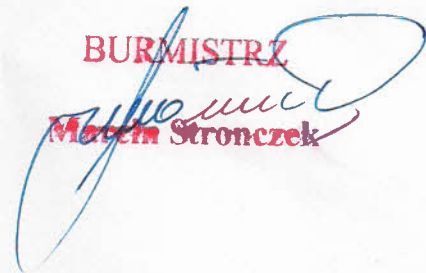 BURMISTRZ
Marcin Stronczek